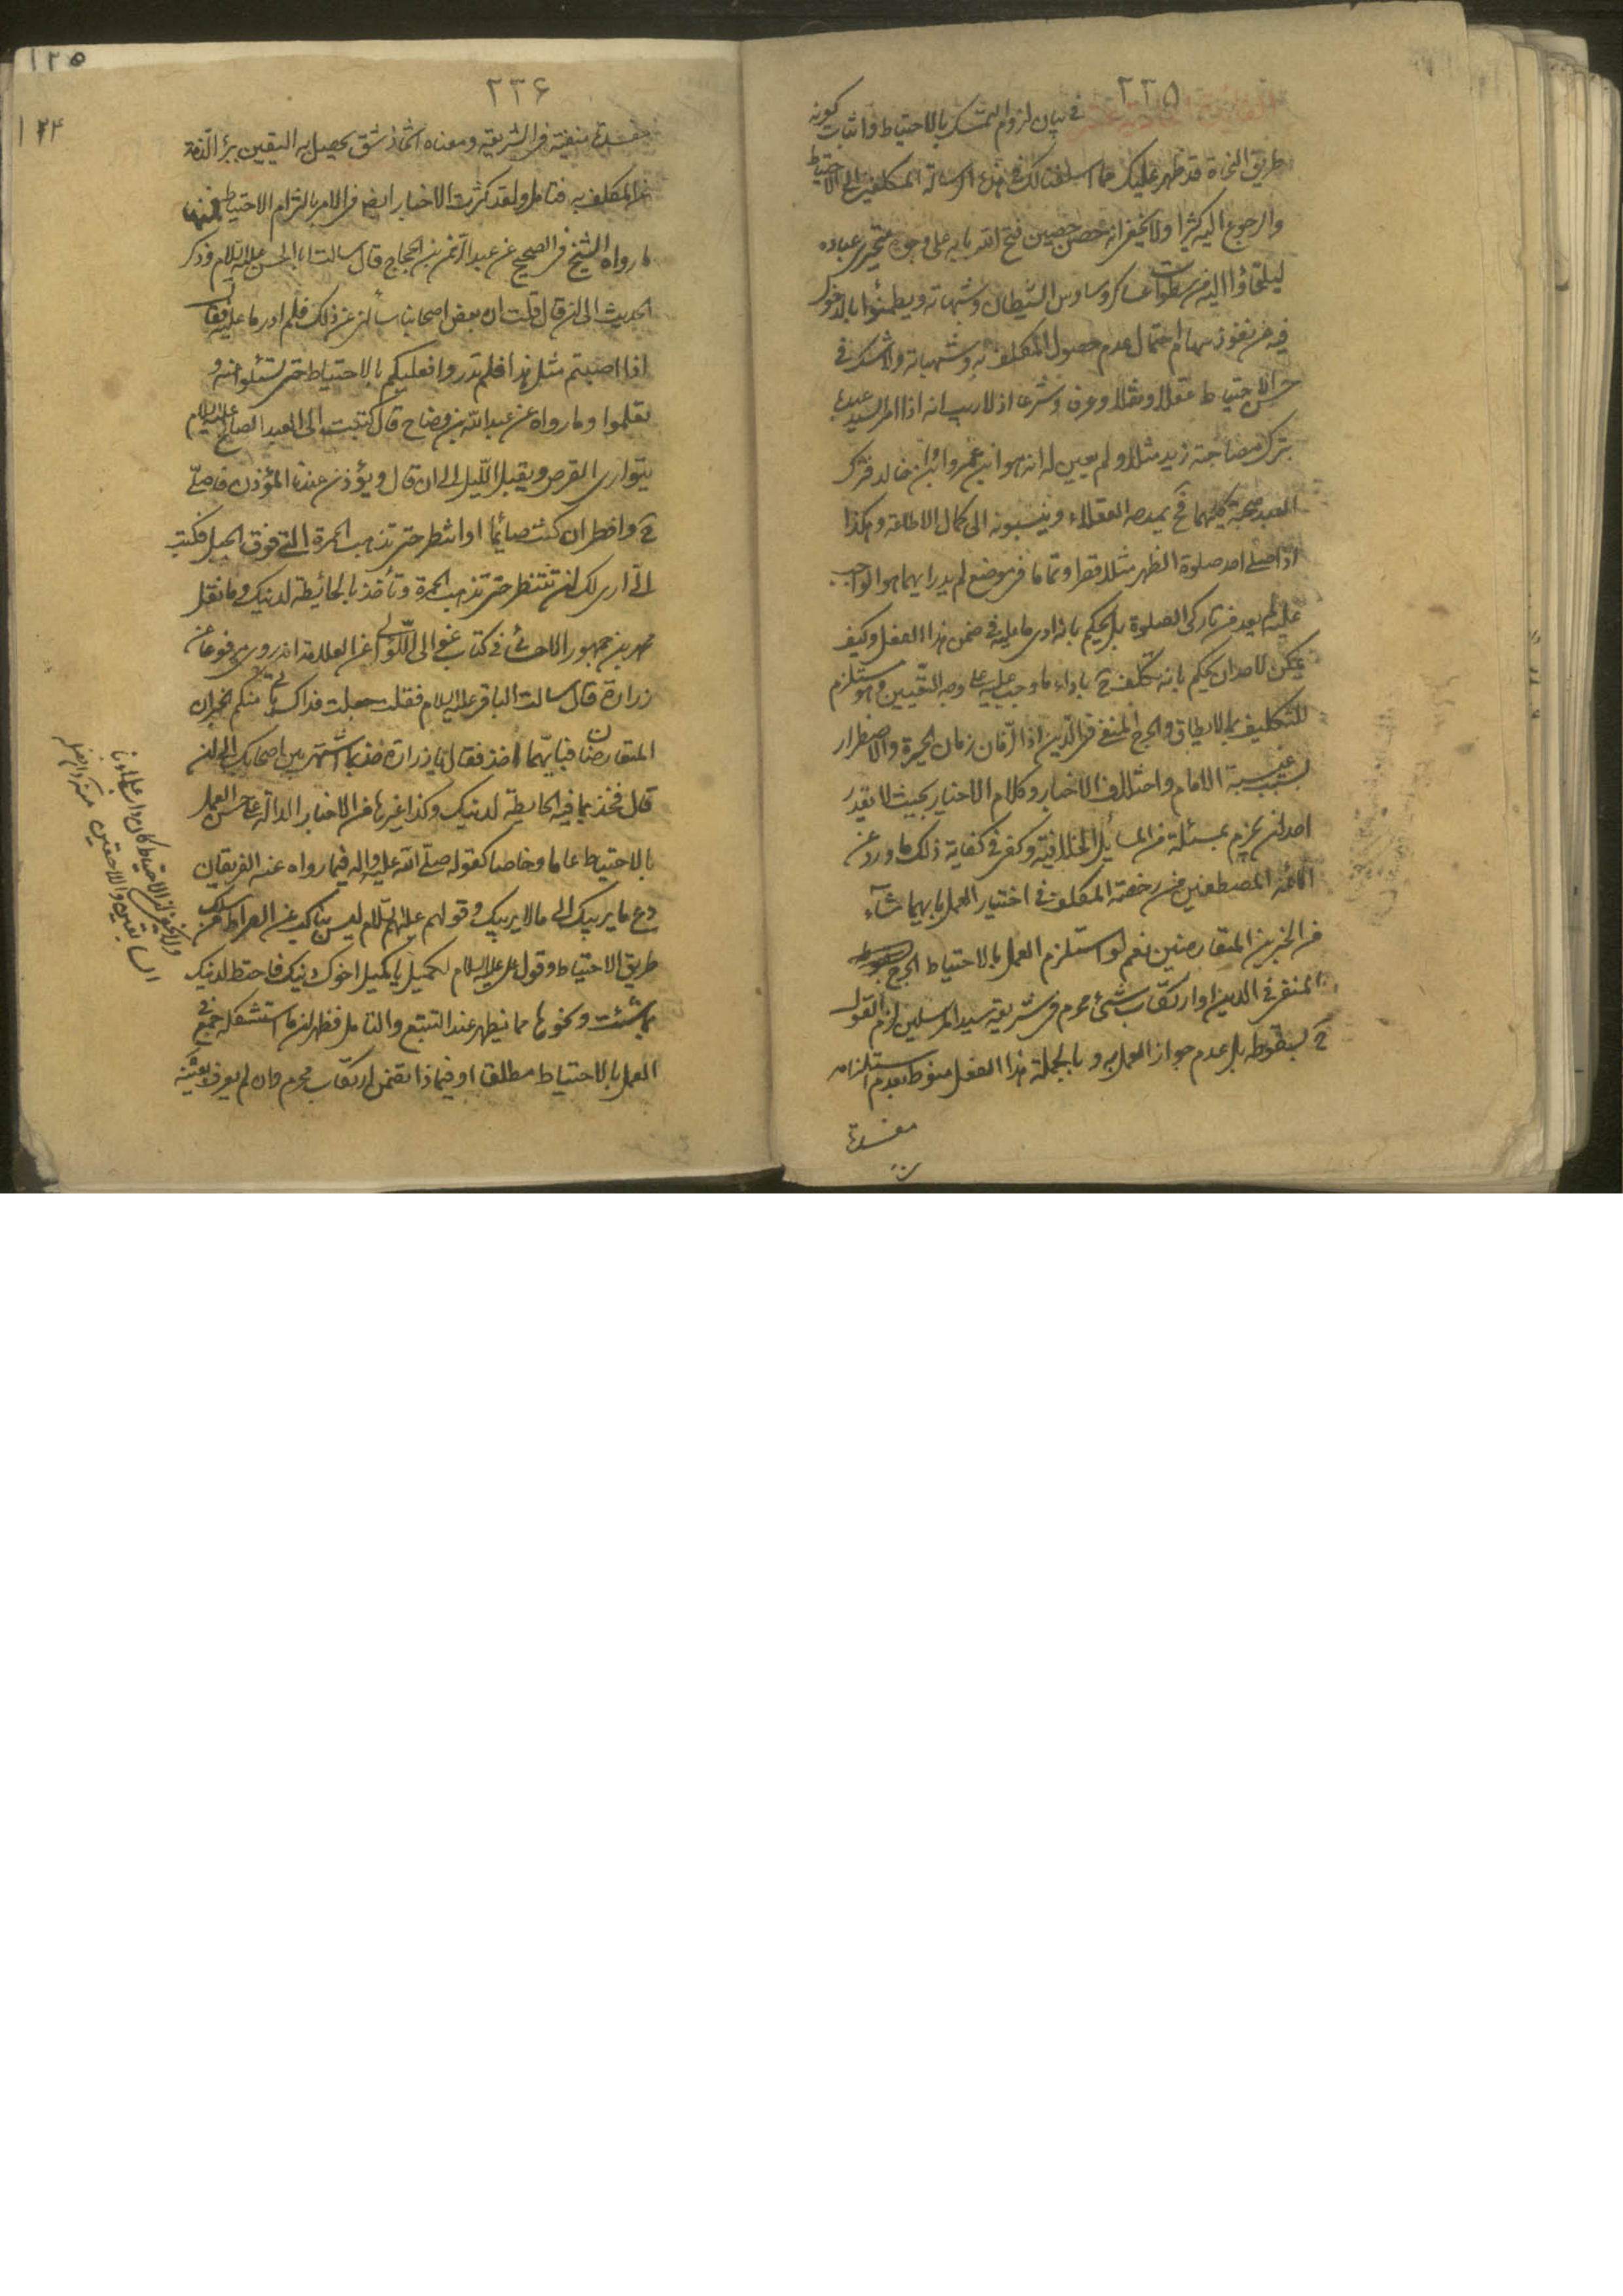 ٢٣٥
في بيان لزوم التمسك بالاحتياط واثبات كونه
طريق النجاة قد ظهر عليك مما اسلفنا لك في هذه الرسالة المكلفين الى الاحتياط
والرجوع اليه كثيرا ولا يخفى انه حصن حصين فتح الله بابه على وجوه متحيرى عباده
ليلتجاؤا اليه من سطوات عساكر وساوس الشيطان وشبهاته ويطمئنوا بالدخول
فيه من نفوذ سهام احتمال عدم حصول المكلف به وشبهاته ولا شك في
حسن الاحتياط عقلا ونقلا وعرفا وشرعا اذ لا ريب انه اذا امر السيد عبده
بترك مصاحبة زيد مثلا ولم يعين له انه هو ابن عمرو او ابن خالد فترك
العبد صحبة كليهما فح يمدحه العقلاء وينسبونه الى كمال الاطاعة وهكذا
اذا صلى احد صلوة الظهر مثلا قصرا وتماما في موضع لم يدر ايهما هو الواجب
عليه لم يعد من تاركى الصلوة بل يحكم بانه ادى ما عليه في ضمن هذا الفعل وكيف
يمكن لاحد ان يحكم بانه تكلف ح باداء ما وجب عليه على وجه التعيين وهو مستلزم
للتكليف بما لا يطاق والحرج المنفى في الدين اذ الزمان زمان الحيرة والاضطرار
بسبب غيبة الامام واختلاف الاخبار وكلام الاخيار بحيث لا يقدر
احد ان يجزم بمسئلة من المسائل الخلافية وكفى في كفاية ذلك ما ورد عن
الائمة المصطفين من رخصة المكلف في اختيار العمل بايهما شآء
من الخبرين المتعارضين نعم لو استلزم العمل بالاحتياط الحرج
المنفى في الدين او ارتكاب شئ محرم في شريعة سيد المرسلين لزم القول
ح بسقوطه بل عدم جواز العمل به وبالجملة هذا الفعل منوط بعدم استلزامه
مفسدة
٢٣۶
١٢۵
١٢۴
مفسدة منفية في الشريعة ومعناه اتخاذ شق يحصل به اليقين ببرأ الذمة
عن المكلف به فتامل ولقد كثرت الاخبار ايضا في الامر بالتزام الاحتياط فمنها
ما رواه الشيخ في الصحيح عن عبد الرحمن بن الحجاج قال سالت ابا الحسن عليه السلام وذكر
الحديث الى ان قال قلت ان بعض اصحابنا سألني عن ذلك فلم ادر ما عليه فقال
اذا اصبتم مثل هذا فلم تدروا فعليكم بالاحتياط حتى تسئلوا عنه و
تعلموا وما رواه عن عبد الله بن وضاح قال كتبت الى العبد الصالح عليه السلام
يتوارى القرص ويقبل الليل الى ان قال ويؤذن عندنا المؤذن فاصلى
ح وافطر ان كنت صائما او انتظر حتى تذهب الحمرة التي فوق الجبل فكتب
الى ارى لك ان تنتظر حتى تذهب الحمرة وتأخذ بالحائطة لدينك وما نقل
محمد بن جمهور الاحسائى في كتاب غوالى اللئالى عن العلامة انه روى مرفوعا عن
زرارة قال سالت الباقر عليه السلام فقلت جعلت فداك ياتى منكم الخبران
المتعارضان فبايهما اخذ فقال يا زرارة خذ بما اشتهر بين اصحابك الى ان
قال فخذ بما فيه الحايطة لدينك وكذا غيرها من الاخبار الدالة على حسن العمل
بالاحتياط عاما وخاصا كقوله صلى الله عليه واله فيما رواه عنه الفريقان
دع ما يريبك الى ما لا يريبك وقولهم عليهم السلام ليس بناكب عن الصراط من سلك
طريق الاحتياط وقول على عليه السلام لكميل يا كميل اخوك دينك فاحتط لدينك
بما شئت ونحوها مما يظهر عند التتبع والتامل فظهر ان ما استشكله جمع في
العمل بالاحتياط مطلقا او فيما اذا تضمن ارتكاب محرم وان لم يعرف بعينه
ولا يخفى ان الاحتياط كان داب علمائنا
السابقين واللاحقين